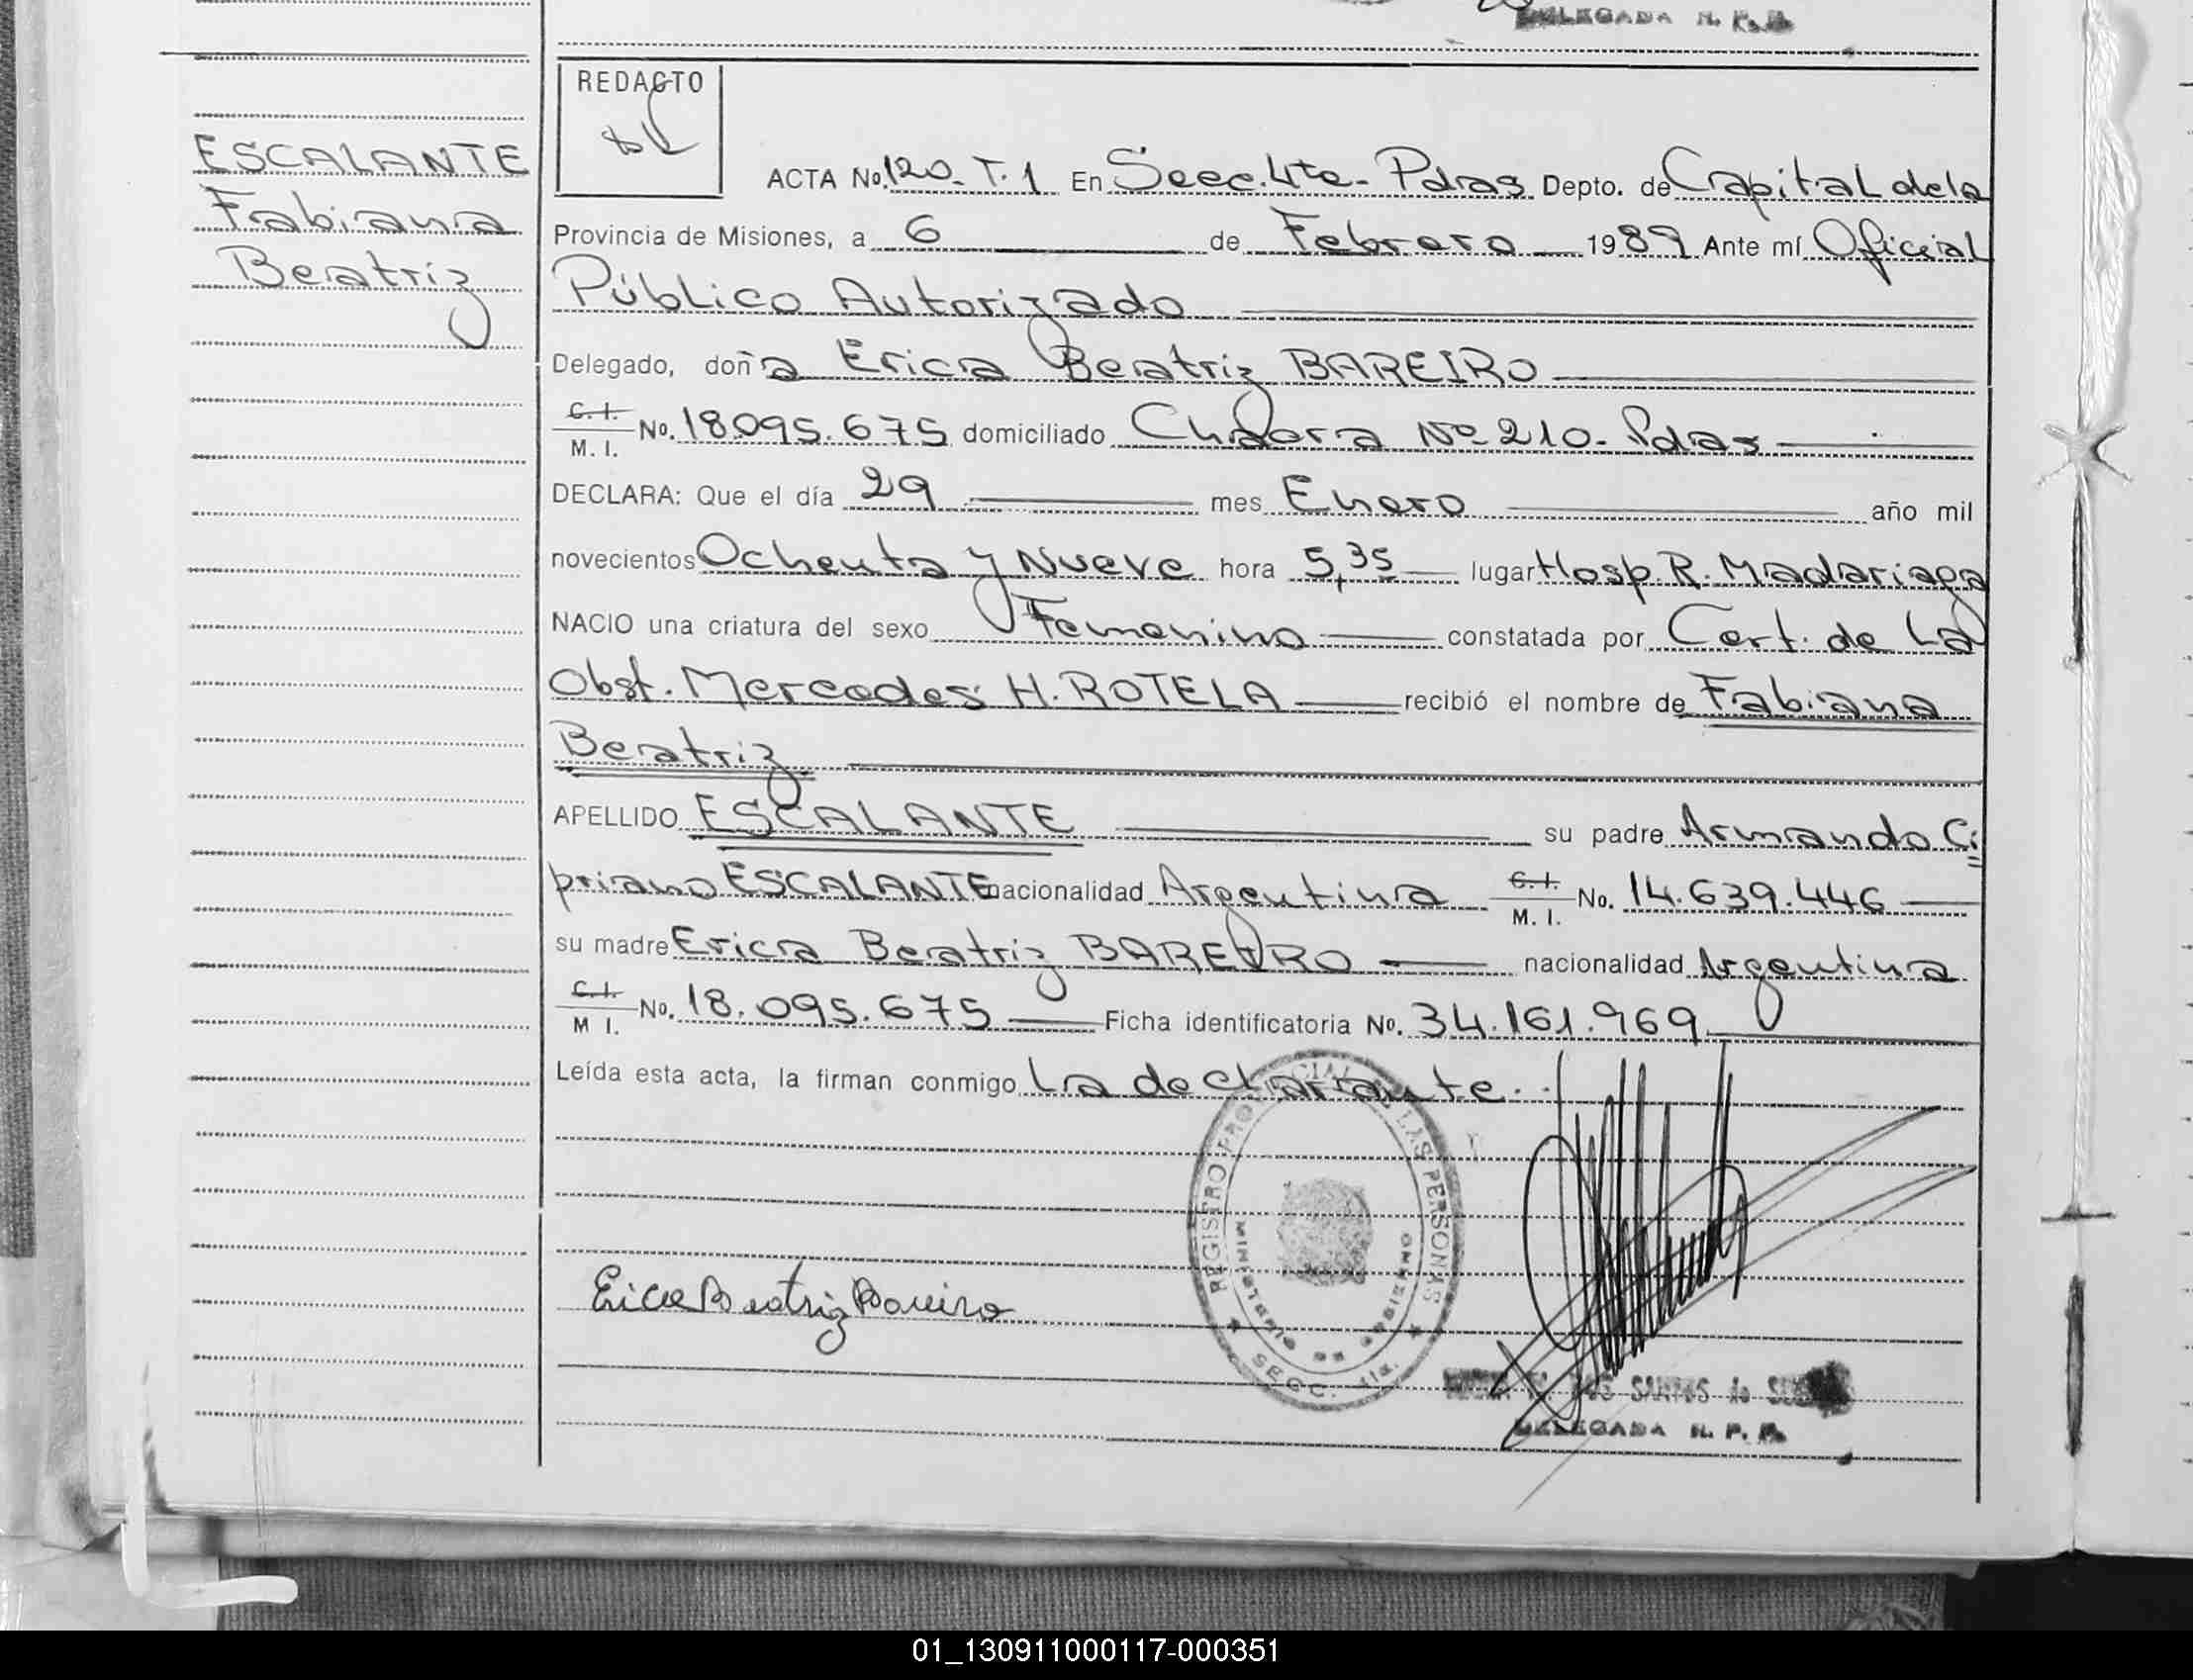 DELEGADA R. P. P.
REDACTO
ESCALANTE
Fabiana
Beatriz
ACTA No. 120. T. 1 En Secc. 4ta - Pdas Depto. de Capital de la
Provincia de Misiones, a 6 de Febrero 1989 Ante mí Oficial
Público Autorizado
Delegado, doña Erica Beatriz BAREIRO
C. I.
M. I. No. 18.095.675 domiciliado Chacra Nº 210 - Pdas
DECLARA: Que el día 29 mes Enero año mil
novecientos Ochenta y Nueve hora 5,35 lugar Hosp. R. Madariaga
NACIO una criatura del sexo Femenino constatada por Cert. de La
Obst. Mercedes H. ROTELA recibió el nombre de Fabiana
Beatriz
APELLIDO ESCALANTE su padre Armando Ci=
priano ESCALANTE nacionalidad Argentina C. I. M. I. No. 14.639.446
su madre Erica Beatriz BAREIRO nacionalidad Argentina
C. I.
M I. No. 18.095.675 Ficha identificatoria No. 34.161.969
Leída esta acta, la firman conmigo La declarante.
REGISTRO PROVINCIAL DE LAS PERSONAS
SECC. 4ta.
Erica Beatriz Bareiro
SANTOS de
DELEGADA R. P. P.
01_130911000117-000351